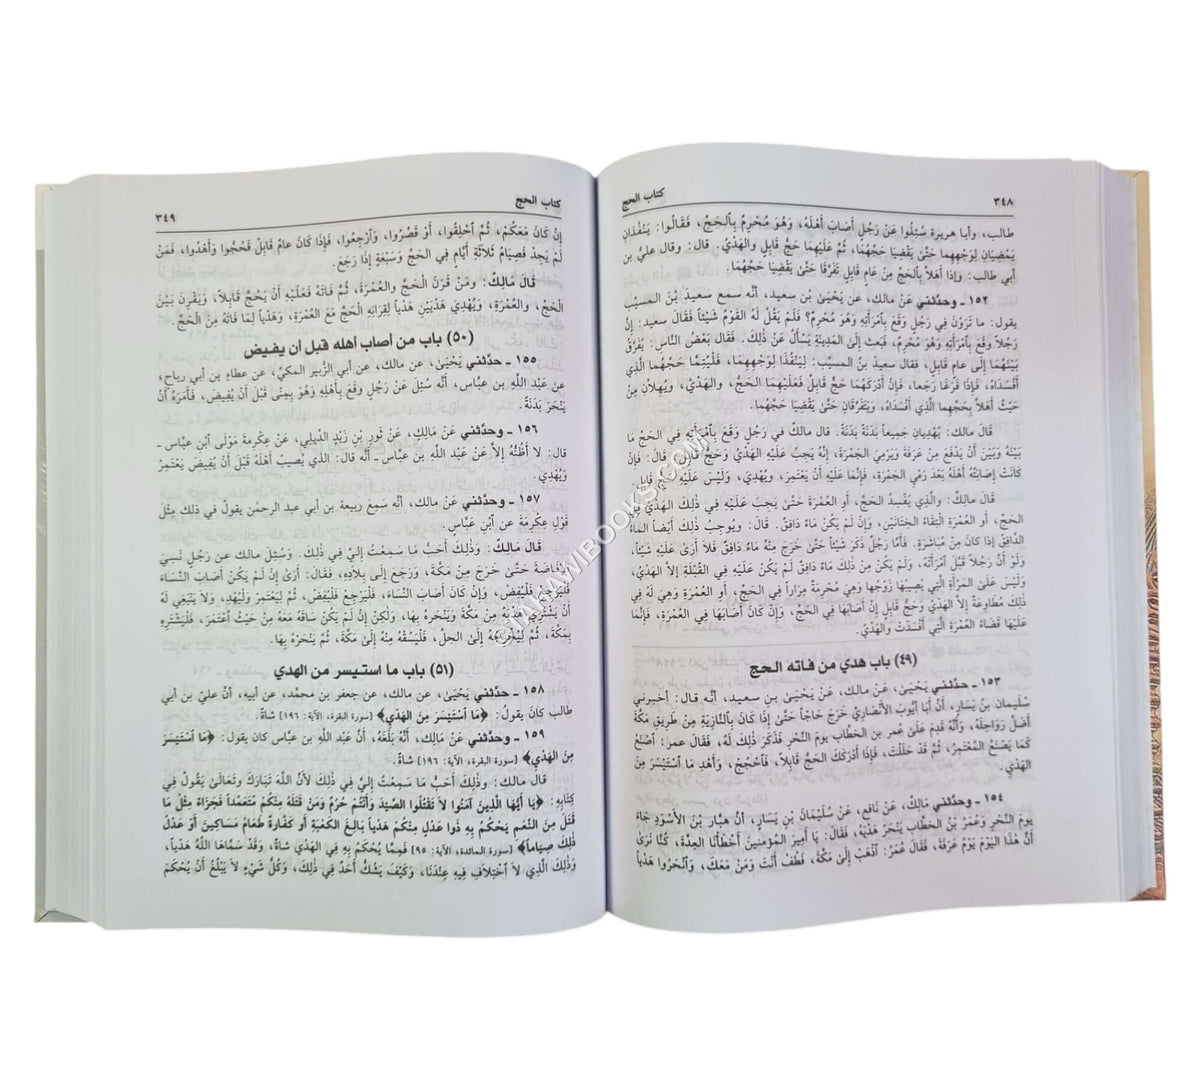 ٣٤٨
كتاب الحج
طالب، وأبا هريرة سُئِلُوا عَنْ رَجُلٍ أَصَابَ أَهْلَهُ، وَهُوَ مُحْرِمٌ بِالْحَجِّ، فَقَالُوا: يَنْفُذَانِ
يَمْضِيَانِ لِوَجْهِهِمَا حَتَّىٰ يَقْضِيَا حَجَّهُمَا، ثُمَّ عَلَيْهِمَا حَجُّ قَابِلٍ وَالْهَدْيُ. قال: وقال عليُّ بن
أبي طالب: وَإِذَا أَهَلَّا بِالْحَجِّ مِنْ عَامٍ قَابِلٍ تَفَرَّقَا حَتَّىٰ يَقْضِيَا حَجَّهُمَا.
١٥٢ ـ وحدّثني عَنْ مالك، عن يَحْيَىٰ بن سعيد، أنه سمع سعيدَ بْنَ المسيّب
يقول: ما تَرَوْنَ فِي رَجُلٍ وَقَعَ بِامْرَأَتِهِ وَهُوَ مُحْرِمٌ؟ فَلَمْ يَقُلْ لَهُ القَوْمُ شَيْئاً فَقَالَ سعيد: إِنَّ
رَجُلاً وَقَعَ بِامْرَأَتِهِ وَهُوَ مُحْرِمٌ، فَبَعَثَ إِلَى الْمَدِينَةِ يَسْأَلُ عَنْ ذَلِكَ. فَقَالَ بَعْضُ النَّاسِ: يُفَرَّقُ
بَيْنَهُمَا إِلَىٰ عَامٍ قَابِلٍ، فقال سعيدُ بنُ المسيّب: لِيَنْفُذَا لِوَجْهِهِمَا، فَلْيُتِمَّا حَجَّهُمَا الَّذِي
أَفْسَدَاهُ، فَإِذَا فَرَغَا رَجَعا، فَإِنْ أَدْرَكَهُمَا حَجٌّ قَابِلٌ فَعَلَيْهِمَا الحَجُّ، والهَدْيُ، وَيُهِلاَّنِ مِنْ
حَيْثُ أَهَلاَّ بِحَجِّهِما الَّذِي أَفْسَدَاهُ، وَيَتَفَرَّقَانِ حَتَّىٰ يَقْضِيَا حَجَّهُمَا.
قَالَ مالك: يُهْدِيَانِ جَمِيعاً بَدَنَةً بَدَنَةً. قال مالك في رَجُلٍ وَقَعَ بِامْرَأَتِهِ فِي الحَجِّ مَا
بَيْنَهُ وَبَيْنَ أَنْ يَدْفَعَ مِنْ عَرَفَةَ وَيَرْمِيَ الجَمْرَةَ: إِنَّهُ يَجِبُ عَلَيْهِ الهَدْيُ وَحَجُّ قَابِلٍ. قَالَ: فَإِنْ
كَانَتْ إِصَابَتُهُ أَهْلَهُ بَعْدَ رَمْيِ الْجَمْرَةِ، فَإِنَّمَا عَلَيْهِ أَنْ يَعْتَمِرَ، وَيُهْدِيَ، وَلَيْسَ عَلَيْهِ حَجُّ قَابِلٍ.
قَالَ مالكٌ: وَالَّذِي يُفْسِدُ الحَجَّ، أو العُمْرَةَ حَتَّىٰ يَجِبَ عَلَيْهِ فِي ذَلِكَ الهَدْيُ فِي
الحَجِّ، أو العُمْرَةِ التِقَاءُ الخِتَانَيْنِ، وَإِنْ لَمْ يَكُنْ مَاءٌ دَافِقٌ. قَالَ: وَيُوجِبُ ذَلِكَ أَيْضاً المَاءُ
الدَّافِقُ إِذَا كَانَ مِنْ مُبَاشَرَةٍ. فَأَمَّا رَجُلٌ ذَكَرَ شَيْئاً حَتَّىٰ خَرَجَ مِنْهُ مَاءٌ دَافِقٌ فَلاَ أَرَىٰ عَلَيْهِ شَيْئاً،
وَلَوْ أَنَّ رَجُلاً قَبَّلَ امْرَأَتَهُ، وَلَمْ يَكُنْ مِنْ ذَلِكَ مَاءٌ دَافِقٌ لَمْ يَكُنْ عَلَيْهِ فِي القُبْلَةِ إِلاَّ الهَدْيُ،
وَلَيْسَ عَلَىٰ المَرْأَةِ الَّتِي يُصِيبُهَا زَوْجُهَا وَهِيَ مُحْرِمَةٌ مِرَاراً فِي الحَجِّ، أَوِ العُمْرَةِ وَهِيَ لَهُ فِي
ذَلِكَ مُطَاوِعَةٌ إِلاَّ الهَدْيُ وَحَجُّ قَابِلٍ إِنْ أَصَابَهَا فِي الحَجِّ، وَإِنْ كَانَ أَصَابَهَا فِي العُمْرَةِ، فَإِنَّمَا
عَلَيْهَا قَضَاءُ العُمْرَةِ الَّتِي أَفْسَدَتْ وَالهَدْيُ.
(٤٩) باب هدي من فاته الحج
١٥٣ ـ حدّثني يَحْيَىٰ، عَنْ مالك، عَنْ يَحْيَىٰ بن سعيد، أنه قال: أخبرني
سُلَيْمَانُ بْنُ يَسَارٍ، أَنَّ أَبَا أَيُّوبَ الأَنْصَارِيَّ خَرَجَ حَاجّاً حَتَّىٰ إِذَا كَانَ بِالنَّازِيَةِ مِنْ طَرِيقِ مَكَّةَ
أَضَلَّ رَوَاحِلَهُ، وَأَنَّهُ قَدِمَ عَلَىٰ عُمر بن الخطاب يومَ النَّحْرِ فَذَكَرَ ذَلِكَ لَهُ، فَقَالَ عمر: اصْنَعْ
كَمَا يَصْنَعُ المُعْتَمِرُ، ثُمَّ قَدْ حَلَلْتَ، فَإِذَا أَدْرَكَكَ الحَجُّ قَابِلاً، فَاحْجُجْ، وَأَهْدِ مَا اسْتَيْسَرَ مِنَ
الهَدْيِ.
١٥٤ ـ وحدّثني مَالِكٌ، عَنْ نَافِعٍ، عَنْ سُلَيْمَانَ بْنِ يَسَارٍ، أَنَّ هَبَّارَ بْنَ الأَسْوَدِ جَاءَ
يومَ النَّحْرِ وَعُمَرُ بْنُ الخَطَّابِ يَنْحَرُ هَدْيَهُ، فَقَالَ: يَا أَمِيرَ المُؤْمِنِينَ أَخْطَأْنَا العِدَّةَ، كُنَّا نَرَىٰ
أَنَّ هٰذَا اليَوْمَ يَوْمُ عَرَفَةَ، فَقَالَ عُمَرُ: اذْهَبْ إِلَىٰ مَكَّةَ، فَطُفْ أَنْتَ وَمَنْ مَعَكَ، وَانْحَرُوا هَدْياً
كتاب الحج
٣٤٩
إِنْ كَانَ مَعَكُمْ، ثُمَّ احْلِقُوا، أَوْ قَصِّرُوا، وَارْجِعُوا، فَإِذَا كَانَ عَامُ قَابِلٍ فَحُجُّوا وَأَهْدُوا، فَمَنْ
لَمْ يَجِدْ فَصِيَامُ ثَلاَثَةِ أَيَّامٍ فِي الحَجِّ وَسَبْعَةٍ إِذَا رَجَعَ.
قَالَ مَالِكٌ: وَمَنْ قَرَنَ الحَجَّ وَالعُمْرَةَ، ثُمَّ فَاتَهُ الحَجُّ فَعَلَيْهِ أَنْ يَحُجَّ قَابِلاً، وَيَقْرِنَ بَيْنَ
الحَجِّ، وَالعُمْرَةِ، وَيُهْدِيَ هَدْيَيْنِ هَدْياً لِقِرَانِهِ الحَجَّ مَعَ العُمْرَةِ، وَهَدْياً لِمَا فَاتَهُ مِنَ الحَجِّ.
(٥٠) باب من أصاب أهله قبل أن يفيض
١٥٥ ـ حدّثني يَحْيَىٰ، عن مالك، عن أبي الزُّبير المكيِّ، عن عطاءِ بن أبي رباحٍ،
عن عَبْدِ اللَّهِ بن عَبَّاسٍ، أَنَّهُ سُئِلَ عَنْ رَجُلٍ وَقَعَ بِأَهْلِهِ وَهُوَ بِمِنًى قَبْلَ أَنْ يُفِيضَ، فَأَمَرَهُ أَنْ
يَنْحَرَ بَدَنَةً.
١٥٦ ـ وحدّثني عَنْ مَالِكٍ، عَنْ ثورِ بْنِ زَيْدٍ الدِّيلي، عَنْ عِكْرِمة مَوْلَى ابْنِ عبَّاسٍ ـ
قَالَ: لا أَظُنُّهُ إِلاَّ عَنْ عَبْدِ اللَّهِ بن عَبَّاسٍ ـ أَنَّهُ قَالَ: الذي يُصِيبُ أَهْلَهُ قَبْلَ أَنْ يُفِيضَ يَعْتَمِرُ
وَيُهْدِي.
١٥٧ ـ وحدّثني عن مالك، أنّه سَمِعَ ربيعة بن أبي عبد الرحمٰن يقولُ في ذلك مِثْلَ
قَوْلِ عِكْرِمَةَ عن ابْنِ عَبَّاسٍ.
قَالَ مَالِكٌ: وَذَلِكَ أَحَبُّ مَا سَمِعْتُ إِلَيَّ فِي ذَلِكَ. وَسُئِلَ مالك عن رَجُلٍ نَسِيَ
الإِفَاضَةَ حَتَّىٰ خَرَجَ مِنْ مَكَّةَ، وَرَجَعَ إِلَىٰ بِلاَدِهِ، فَقَالَ: أَرَىٰ إِنْ لَمْ يَكُنْ أَصَابَ النِّسَاءَ
فَلْيَرْجِعْ، فَلْيُفِضْ، وَإِنْ كَانَ أَصَابَ النِّسَاءَ، فَلْيَرْجِعْ فَلْيُفِضْ، ثُمَّ لِيَعْتَمِرْ وَلْيُهْدِ، وَلاَ يَنْبَغِي لَهُ
أَنْ يَشْتَرِيَ هَدْيَهُ مِنْ مَكَّةَ وَيَنْحَرَهُ بِهَا، وَلَكِنْ إِنْ لَمْ يَكُنْ سَاقَهُ مَعَهُ مِنْ حَيْثُ اعْتَمَرَ، فَلْيَشْتَرِهِ
بِمَكَّةَ، ثُمَّ لِيُخْرِجْهُ إِلَى الحِلِّ، فَلْيَسُقْهُ مِنْهُ إِلَىٰ مَكَّةَ، ثُمَّ يَنْحَرْهُ بِهَا.
(٥١) باب ما استيسر من الهدي
١٥٨ ـ حدّثني يَحْيَىٰ، عن مالك، عن جعفر بن محمد، عن أبيه، أنَّ عليّ بن أبي
طالب كانَ يقولُ: ﴿مَا اسْتَيْسَرَ مِنَ الهَدْيِ﴾ [سورة البقرة، الآية: ١٩٦] شاةٌ.
١٥٩ ـ وحدّثني عَنْ مَالِك، أنّه بَلَغَهُ، أَنَّ عَبْدَ اللَّهِ بن عباس كان يقول: ﴿مَا اسْتَيْسَرَ
مِنَ الهَدْيِ﴾ [سورة البقرة، الآية: ١٩٦] شَاةٌ.
قال مالك: وَذَلِكَ أَحَبُّ مَا سَمِعْتُ إِلَيَّ فِي ذَلِكَ لأَنَّ اللَّهَ تَبَارَكَ وَتَعَالَىٰ يَقُولُ فِي
كِتَابِهِ: ﴿يَا أَيُّهَا الَّذِينَ آمَنُوا لاَ تَقْتُلُوا الصَّيْدَ وَأَنْتُمْ حُرُمٌ وَمَنْ قَتَلَهُ مِنْكُمْ مُتَعَمِّداً فَجَزَاءٌ مِثْلُ مَا
قَتَلَ مِنَ النَّعَمِ يَحْكُمُ بِهِ ذَوا عَدْلٍ مِنْكُمْ هَدْياً بَالِغَ الكَعْبَةِ أَوْ كَفَّارَةٌ طَعَامُ مَسَاكِينَ أَوْ عَدْلُ
ذَلِكَ صِيَاماً﴾ [سورة المائدة، الآية: ٩٥] فَمِمَّا يُحْكَمُ بِهِ فِي الهَدْيِ شَاةٌ، وَقَدْ سَمَّاهَا اللَّهُ هَدْياً،
وَذَلِكَ الَّذِي لاَ اخْتِلاَفَ فِيهِ عِنْدَنَا، وَكَيْفَ يَشُكُّ أَحَدٌ فِي ذَلِكَ، وَكُلُّ شَيْءٍ لاَ يَبْلُغُ أَنْ يُحْكَمَ